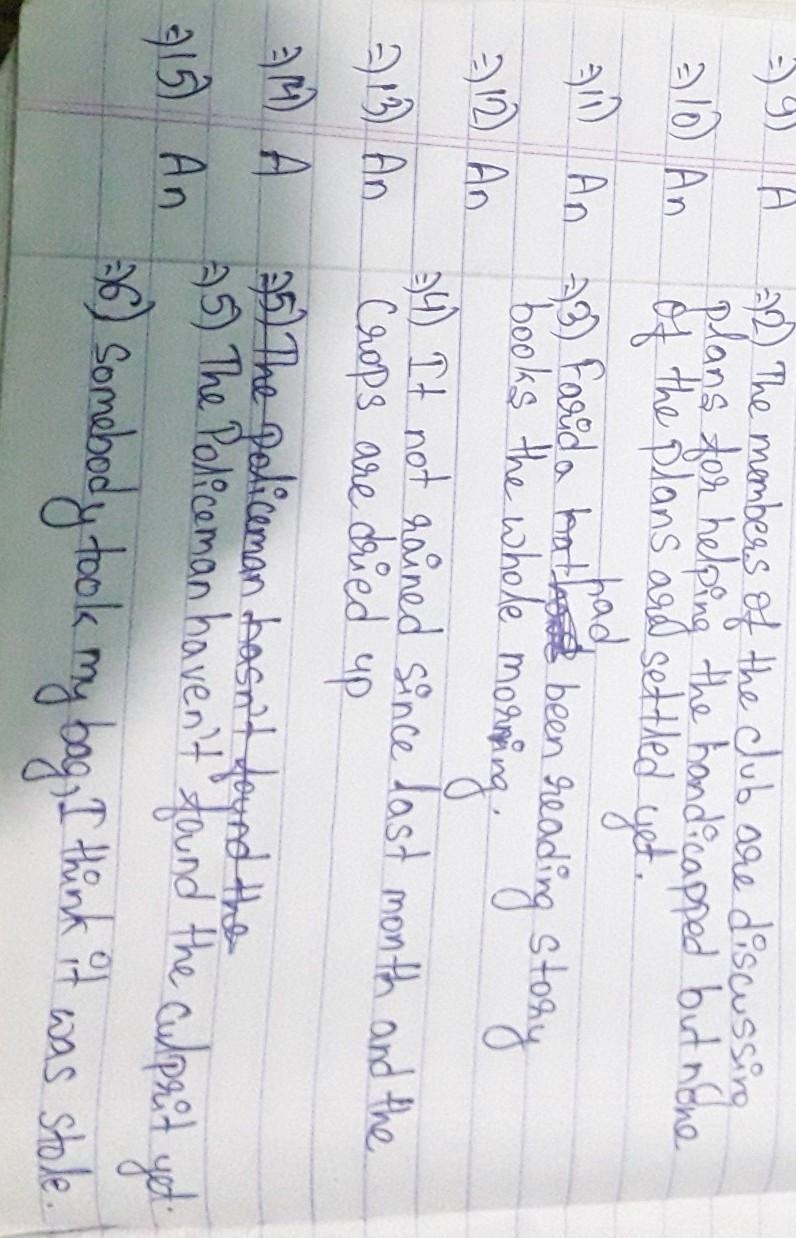 =) 9) A
=) 10) An
=) 11) An
=) 12) An
=) 13) An
=) 14) A
=) 15) An
=) 2) The members of the club are discussing
plans for helping the handicapped but none
of the plans are settled yet.
=) 3) Farida had been reading story
books the whole morning.
=) 4) It not rained since last month and the
Crops are dried up
=) 5) The policeman hasn't found the
=) 5) The Policeman haven't found the culprit yet.
=) 6) Somebody took my bag, I think it was stole.